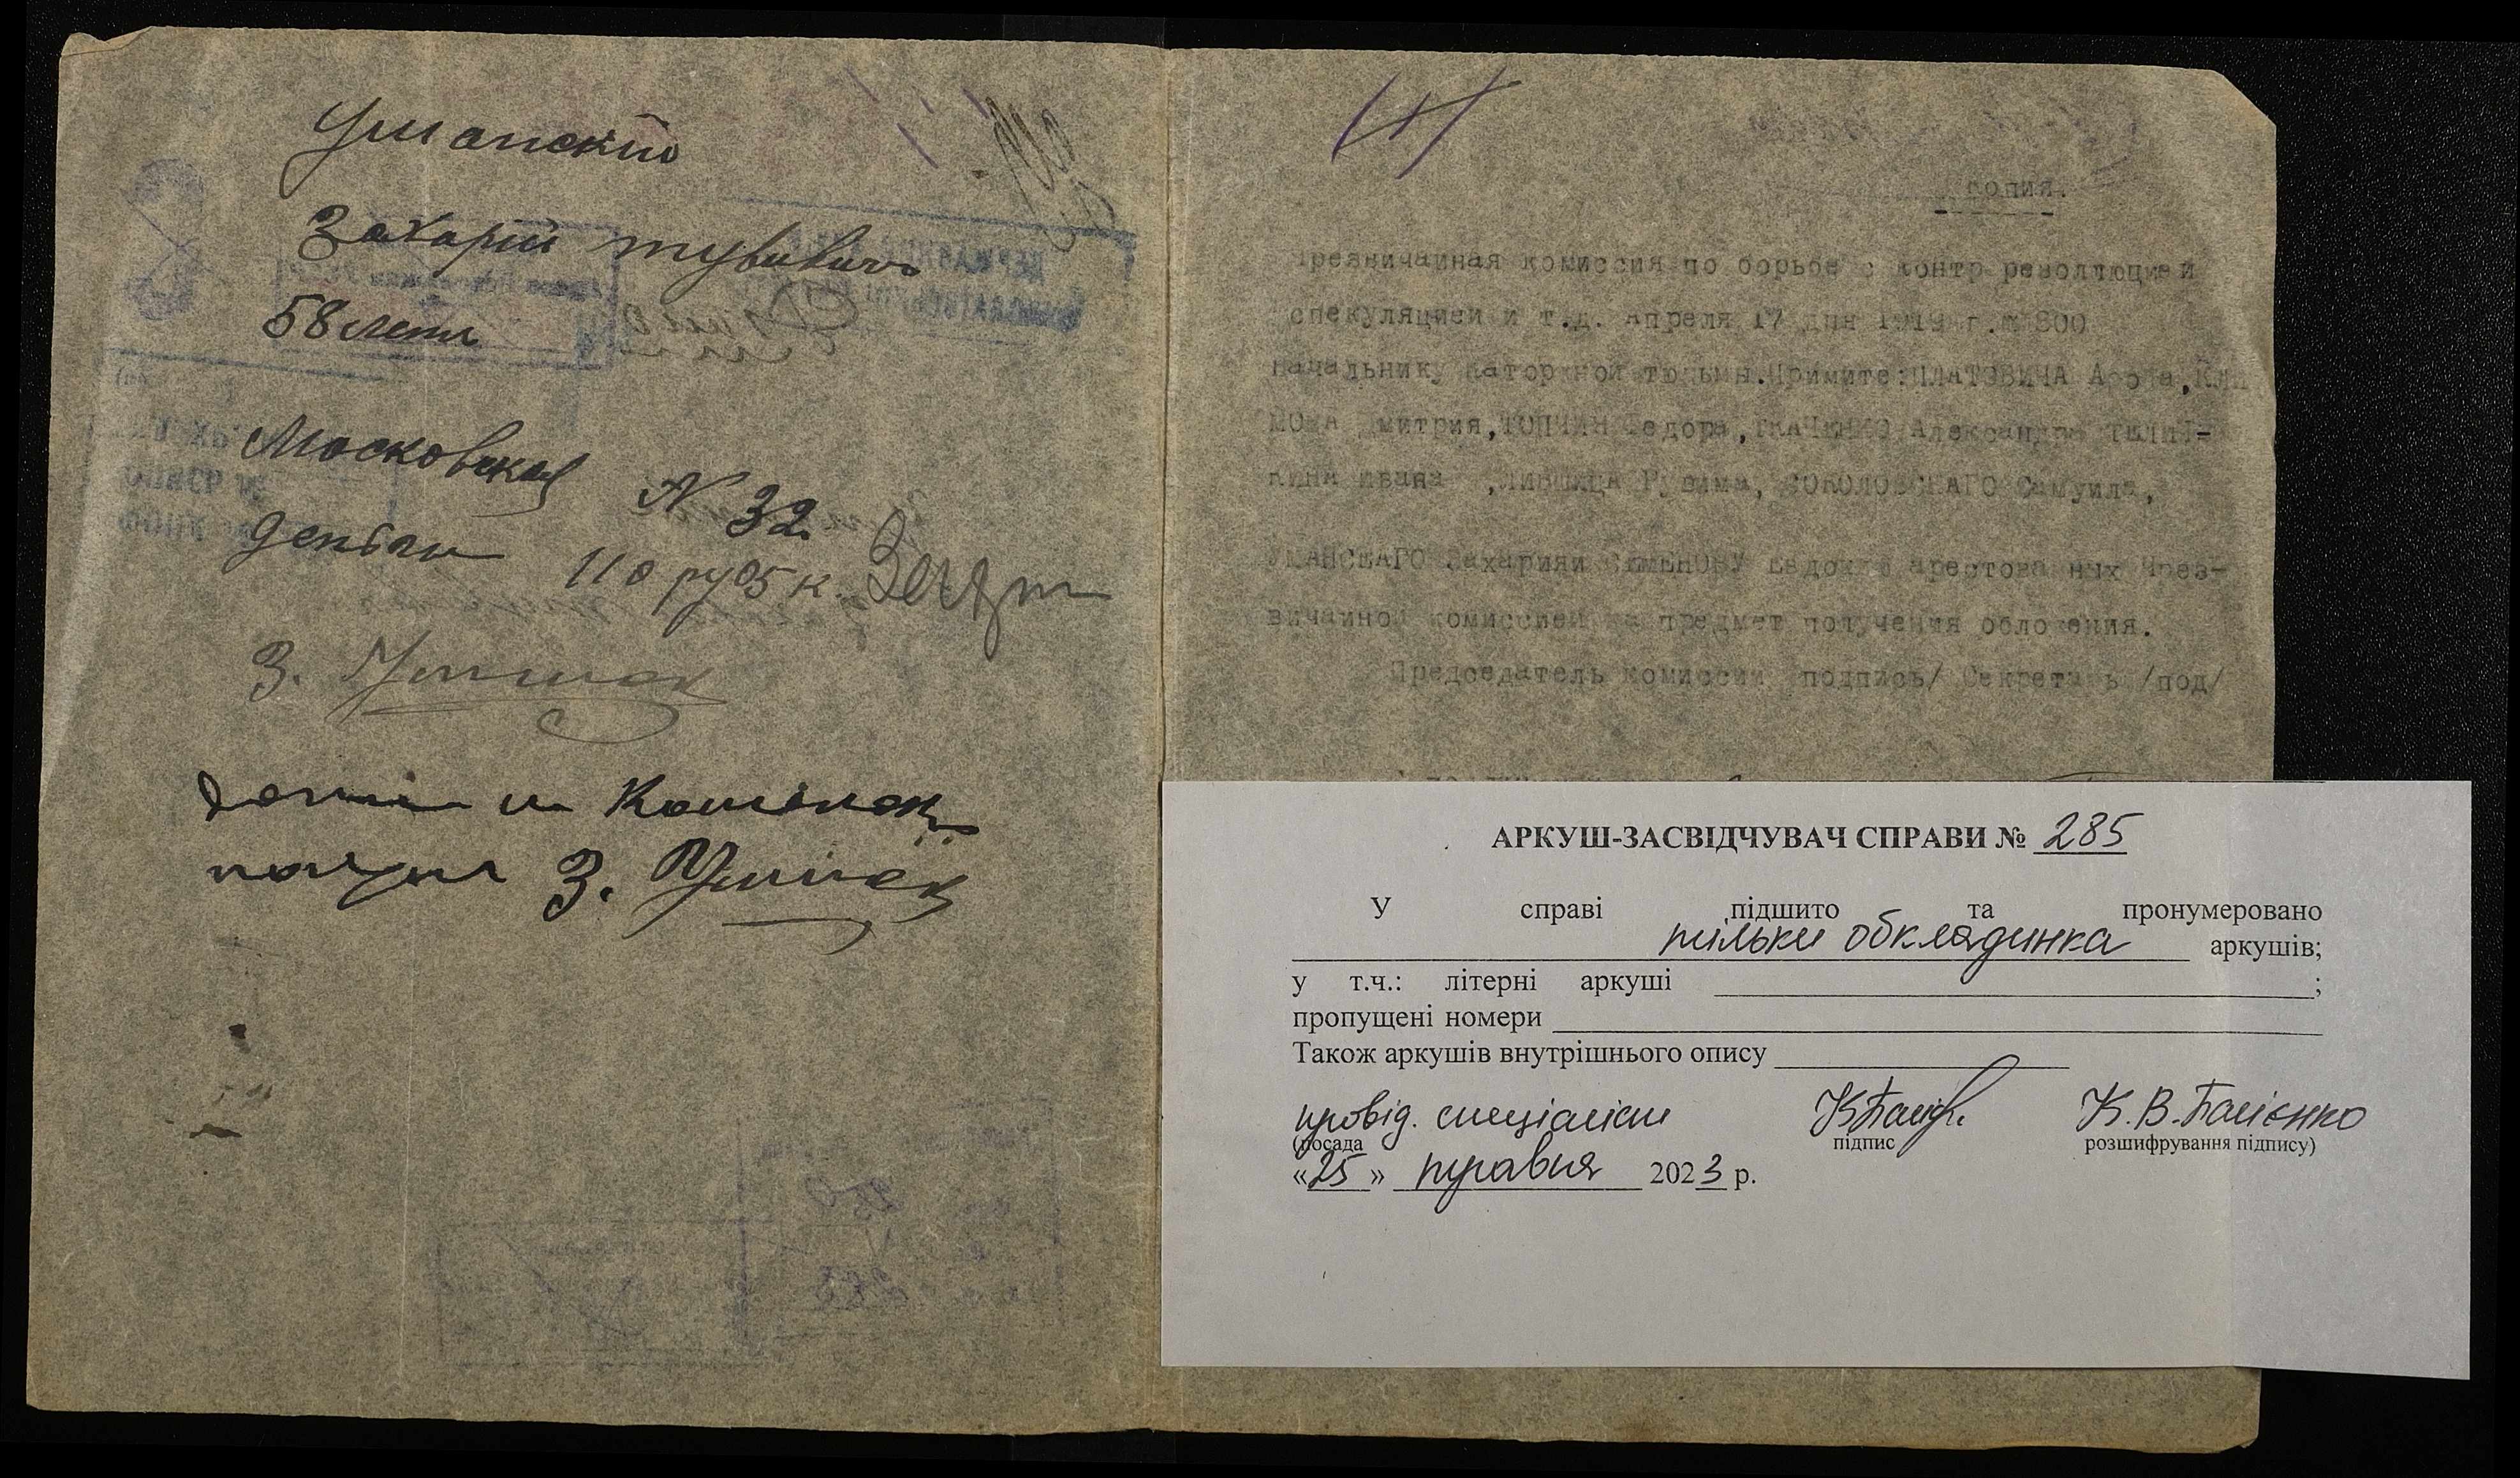 Уманский
Захарий тувивичъ
58 летъ
Московская N 32
Денгами 110 руб к.
З. Уманск
Денги и Кошелок
получил З. Уманск
Копия.
Чрезвичайная комиссия по борьбе с контр революцией
спекуляцией и т.д. Апреля 17 дня 1919 г. № 800
Начальнику Каторжной тюрьмы. Примите: ПЛАТОВИЧА Арона, Кли
МОВА Дмитрия, ТОПЧИЙ Федора, ТКАЧЕНКО Александра
КИНА Ивана , ЛИВШИЦА Рувима, СОКОЛОВСКАГО Самуила,
УМАНСКАГО Захарияи СЕМЕНОВУ Евдокию арестованных Чрез-
вичайной комиссией на предмет получения обложения.
Председатель комиссии /подпись/ Секретарь /под/
АРКУШ-ЗАСВІДЧУВАЧ СПРАВИ № 285
У справі підшито та пронумеровано
тільки обкладинка аркушів;
у т.ч.: літерні аркуші ;
пропущені номери
Також аркушів внутрішнього опису
провід. спеціаліст К.В.Балієнко
(посада підпис розшифрування підпису)
«25» травня 2023 р.